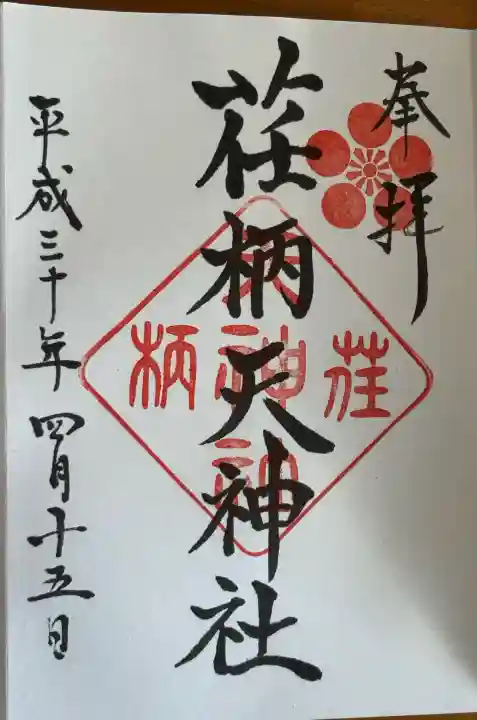 奉拝
荏柄天神社
平成三十年四月十五日
荏
柄